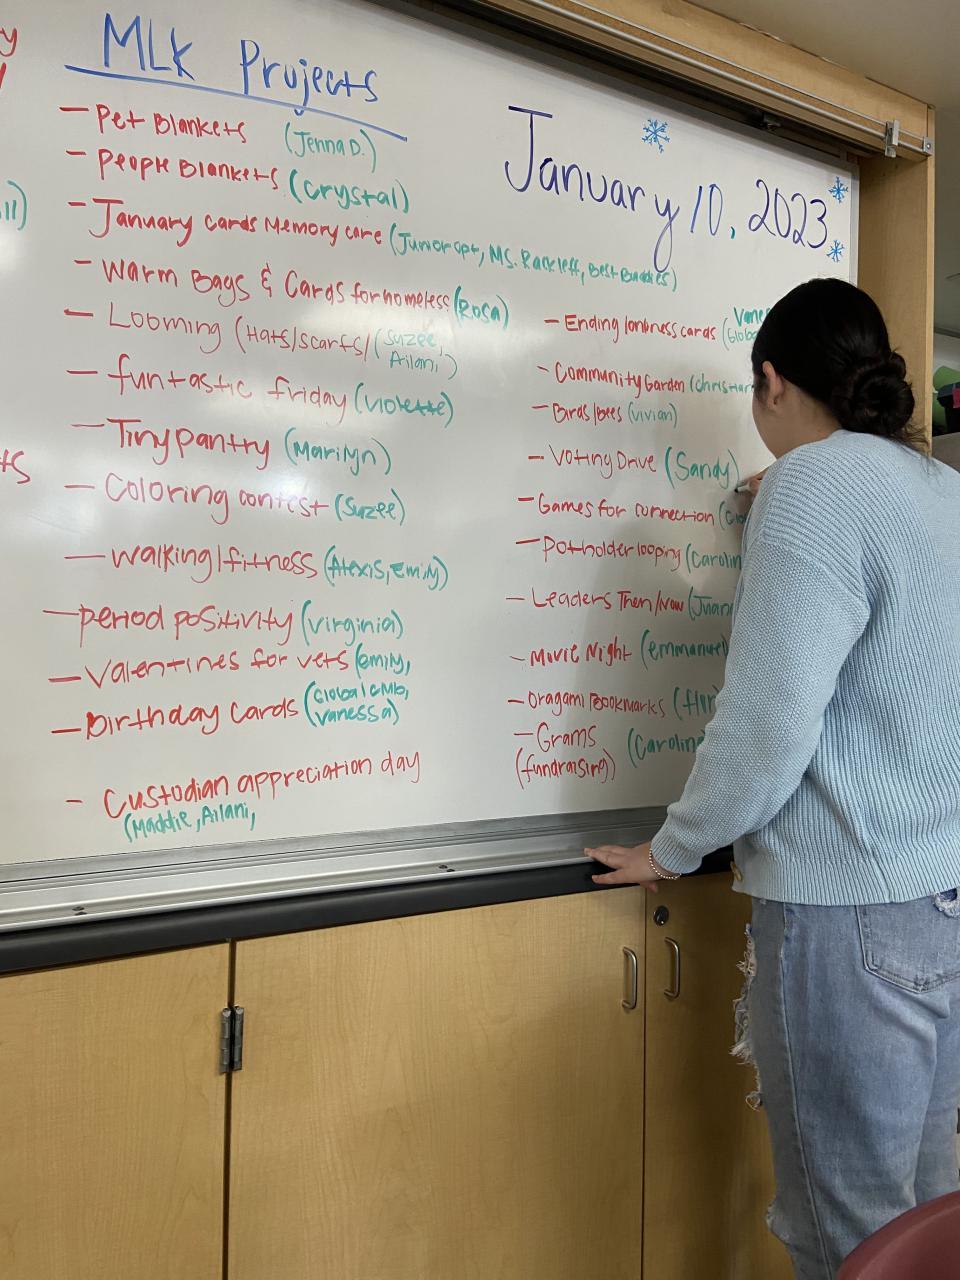 MLK Projects
- Pet Blankets (Jenna D.)
- People Blankets (Crystal)
- January cards Memory care (Junior opt, Ms. Rackleff, Best Buddies)
- Warm Bags & Cards for homeless (Rosa)
- Looming (Hats/scarfs/(Suzee,
Ailani,)
- funtastic friday (violette)
- Tiny pantry (Marilyn)
- Coloring contest (Suzee)
- Walking/fitness (Alexis, Emily)
- period positivity (virginia)
- Valentines for vets (emily,
- Birthday cards (Global CMB,
Vanessa)
- Custodian appreciation day
(Maddie, Ailani,
January 10, 2023
- Ending lonliness cards
- Community Garden
- Birds/bees (vivian)
- Voting Drive (Sandy)
- Games for connection
- Potholder looping
- Leaders Then/Now
- Movie Night (emmanuel)
- Oragami Bookmarks
- Grams
(fundraising)